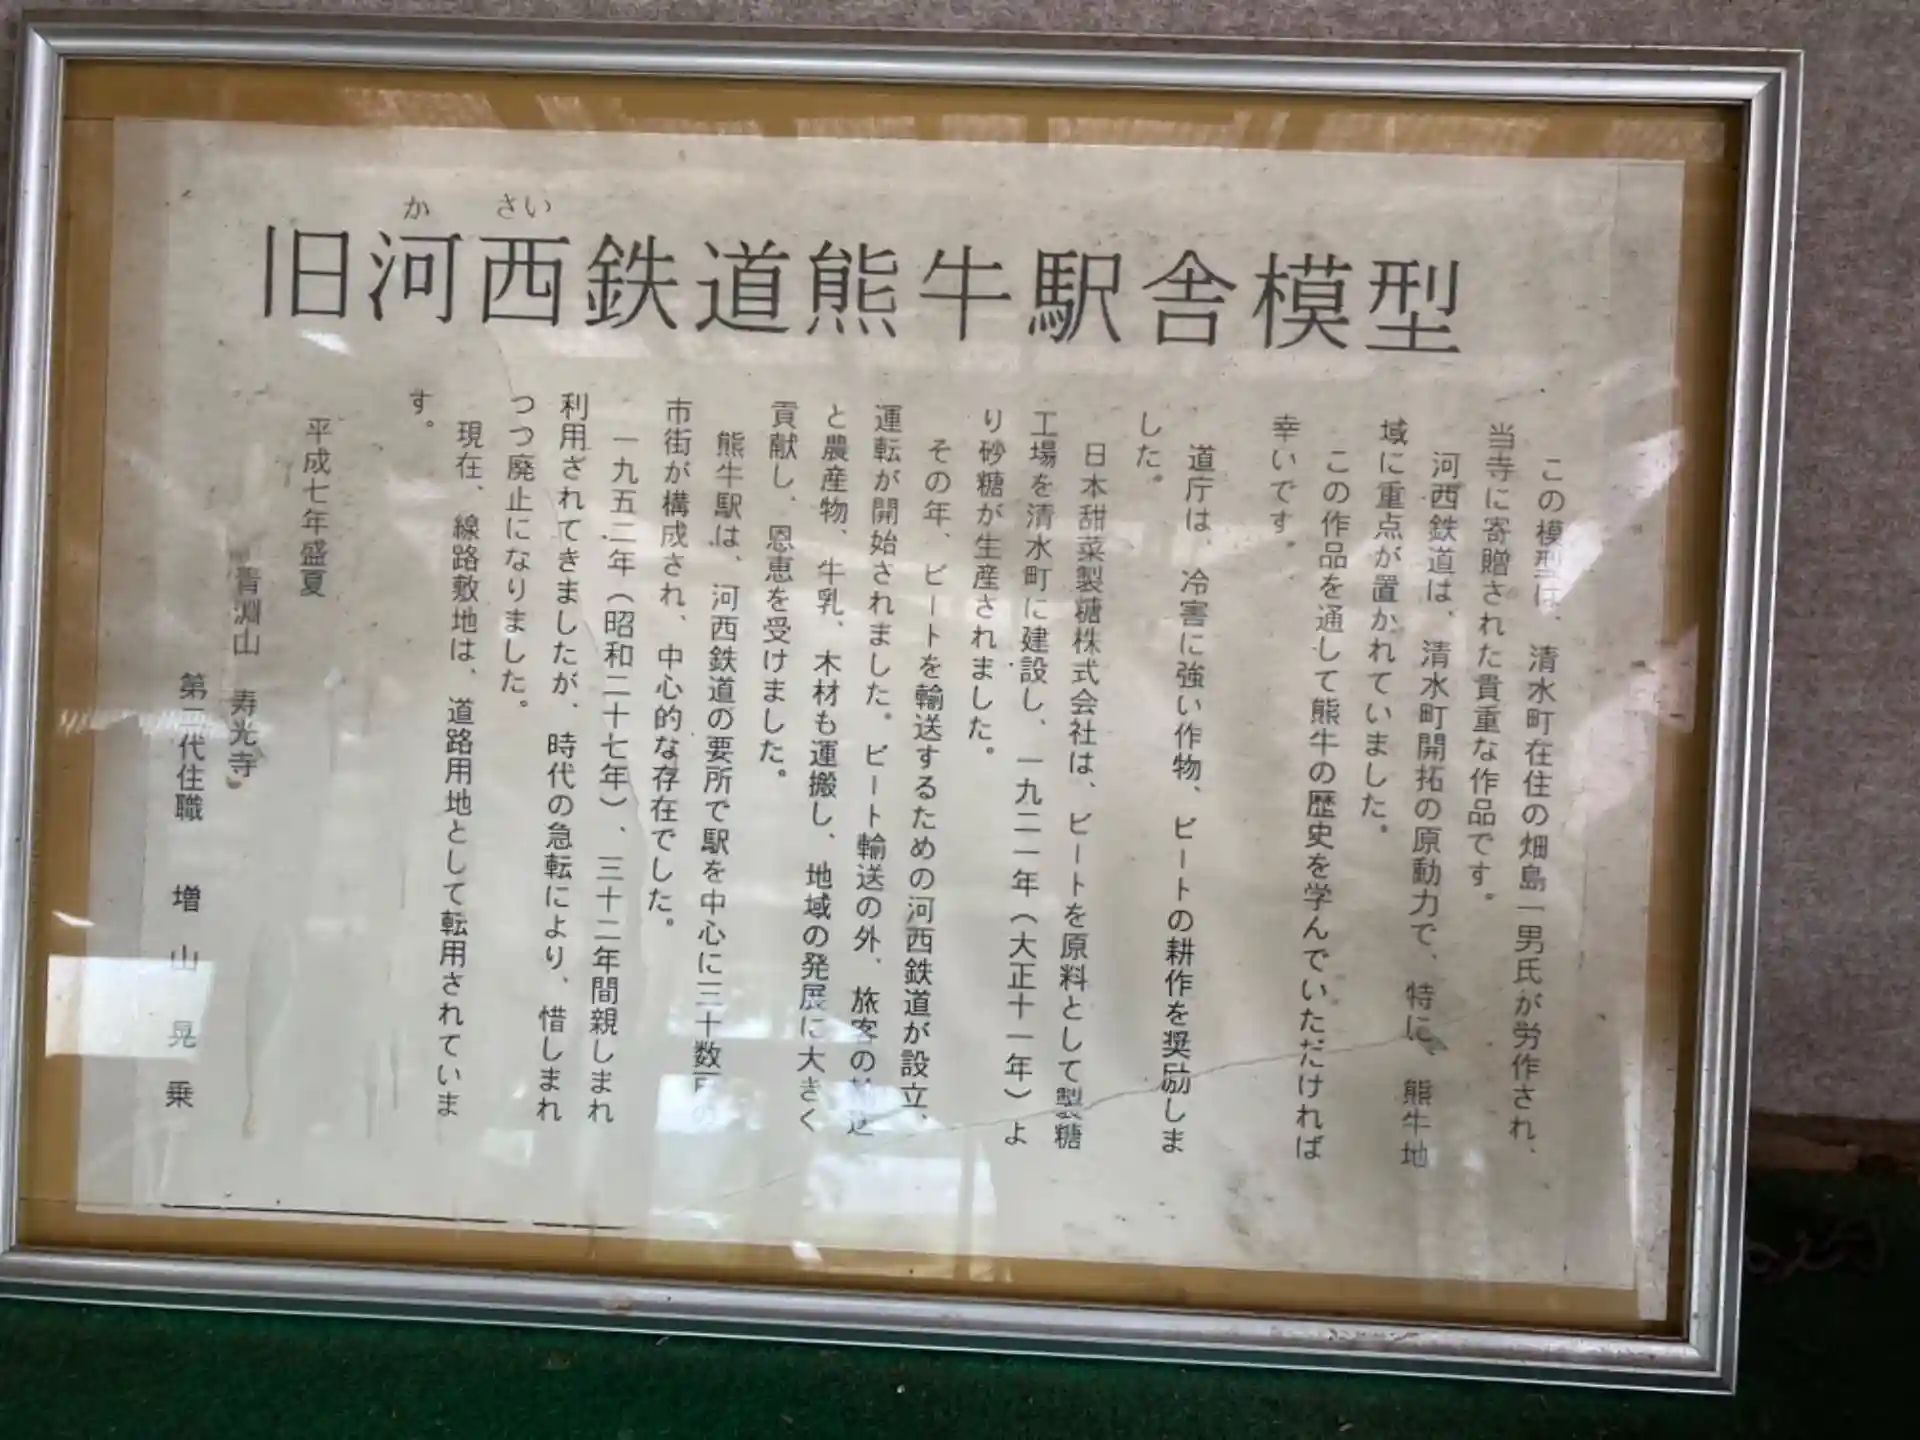 か さい
旧河西鉄道熊牛駅舎模型
この模型は、清水町在住の畑島一男氏が労作され、
当寺に寄贈された貴重な作品です。
河西鉄道は、清水町開拓の原動力で、特に、熊牛地
域に重点が置かれていました。
この作品を通して熊牛の歴史を学んでいただければ
幸いです。
道庁は、冷害に強い作物、ビートの耕作を奨励しま
した。
日本甜菜製糖株式会社は、ビートを原料として製糖
工場を清水町に建設し、一九二一年(大正十一年)よ
り砂糖が生産されました。
その年、ビートを輸送するための河西鉄道が設立、
運転が開始されました。ビート輸送の外、旅客の輸送
と農産物、牛乳、木材も運搬し、地域の発展に大きく
貢献し、恩恵を受けました。
熊牛駅は、河西鉄道の要所で駅を中心に三十数戸の
市街が構成され、中心的な存在でした。
一九五二年(昭和二十七年)、三十二年間親しまれ
利用されてきましたが、時代の急転により、惜しまれ
つつ廃止になりました。
現在、線路敷地は、道路用地として転用されていま
す。
平成七年盛夏
青淵山 寿光寺
第二代住職 増山晃乗